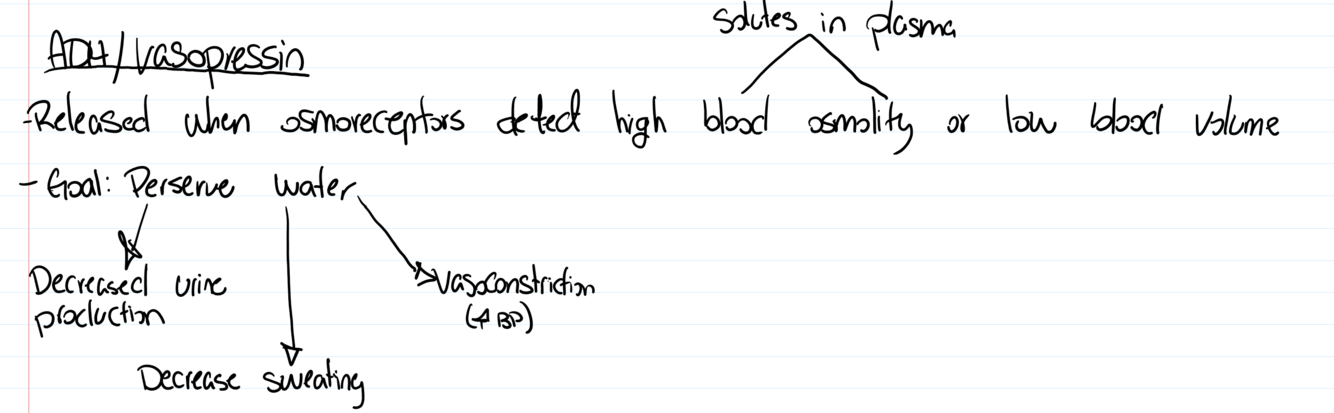 Solutes in plasma
ADH/Vasopressin
-Released when osmoreceptors detect high blood osmolity or low blood volume
- Goal: Perserve water
Decreased urine
production
Vasoconstriction
(↑ BP)
Decrease sweating